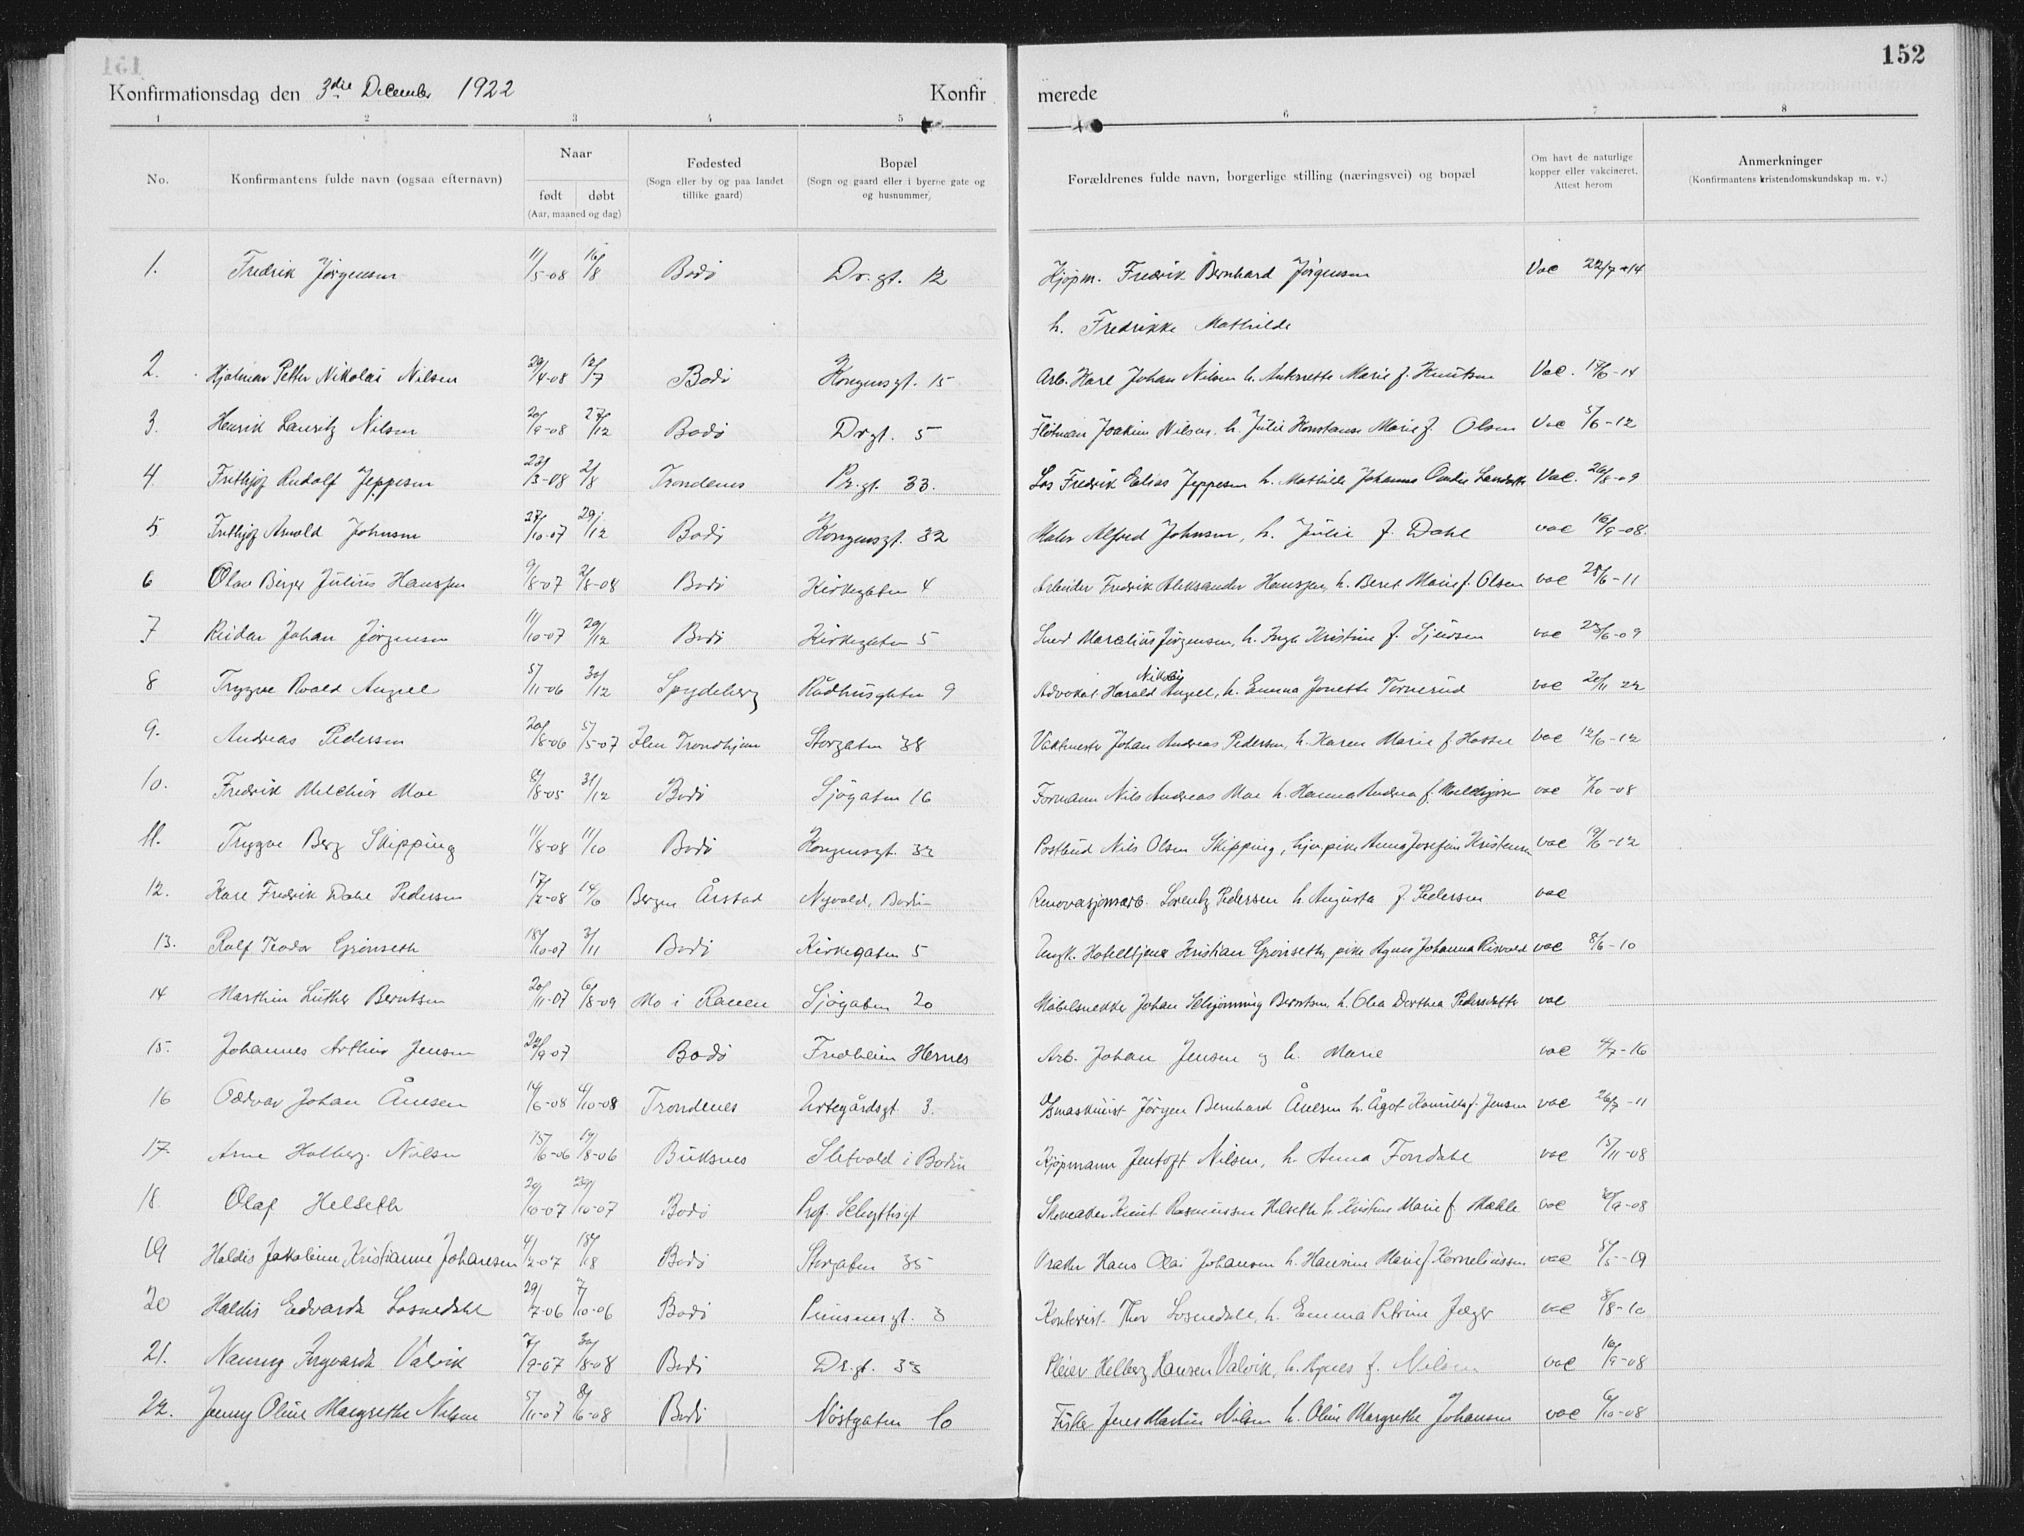 151
152
Konfirmationsdag den 3die December 1922
Konfirmerede
1 2 3 4 5 6 7 8
No.
Konfirmantens fulde navn (ogsaa efternavn)
Naar
født døbt
(Aar, maaned og dag)
Fødested
(Sogn eller by og paa landet
tillike gaard)
Bopæl
(Sogn og gaard eller i byerne gate og
og husnummer)
Forældrenes fulde navn, borgerlige stilling (næringsvei) og bopæl
Om havt de naturlige
kopper eller vakcineret.
Attest herom
Anmerkninger
(Konfirmantens kristendomskundskap m. v.)
1. Fredrik Jørgensen 11/5-08 16/8 Bodö Dr. gt. 12 Kjøpm. Fredrik Bernhard Jörgensen Vac 22/7-14
h. Fredrikke Mathilde
2. Hjalmar Petter Nikolai Nilsen 29/4-08 12/7 Bodö Kongensgt. 15 Arb. Karl Johan Nilsen h. Antonette Marie f. Knutsen Vac. 17/6-14
3. Henrik Lauritz Nilsen 20/9-08 27/12 Bodö Dr gt. 5 Joakim Nilsen h. Julie Konstanse Marie f. Olsen Vac 5/6-12
4. Frithjof Rudolf Jeppesen 23/3-08 2/8 Trondenes Pr. gt. 33. Los Fredrik Elias Jeppesen h. Mathilde Johanna Vac. 26/8-09
5 Frithjof Arnold Johnsen 27/10-07 29/12 Bodö Kongensgt. 32 Maler Alfred Johnsen, h. Julie f. Dahl vac 16/9-08.
6 Olav Birger Julius Hanssen 9/8-07 2/8-08 Bodö Kirkegaten 4 Arbeider Fredrik Aleksander Hanssen, h. Beret Marie f. Olsen vac 28/6-11
7 Reidar Johan Jörgensen 11/10-07 29/12 Bodö Kirkegaten 5 Smed Marcelius Jörgensen, h. Inga Kristine f. Sjursen vac 23/6-09
8 Trygve Roald Angell 5/11-06 30/12 Spydeberg Rådhusgaten 9 Advokat Harald Nikolai Angell, h. Emma Jonette Tornerud vac 20/11 22
9. Andreas Pedersen 20/8-06 5/5-07 Ilen Trondhjem Storgaten 38 Vaktmester Johan Andreas Pedersen, h. Karen Marie f. vac 12/6-12
10. Fredrik Melchior Moe 8/8-05 31/12 Bodö Sjøgaten 16 Formann Nils Andreas Moe h. Hanna Andrea f. vac 7/10-08
11. Trygve Berg Skipping 11/8-08 11/10 Bodö Kongensgt. 32 Postbud Nils Olsen Skipping, Anna Josefine Kristensen vac 19/6-12
12. Kare Fredrik Dahl Pedersen 17/2-08 14/6 Bergen Årstad Nyvold, Bodin Renovasjonsarb. Lorentz Pedersen h. Augusta f. Pedersen vac
13. Rolf Teodor Grönseth 18/10-07 3/11 Bodö Kirkegaten 5 Ungk. Hotelltjener Kristian Grönseth, pike Agnes Johanna Risvold vac 8/6-10
14 Marthin Luther Berntsen 20/11-07 6/8-09 Mo i Ranen Sjøgaten 20 Möbelsnekker Johan Berntsen, h. Olea Dorthea Pedersdatter vac
15. Johannes Arthur Jensen 22/9 07 Bodö Fredheim Hernes Arb. Johan Jensen og h. Marie vac 4/7-16
16 Oddvar Johan Ånesen 14/6-08 4/10-08 Trondenes Urtegårdsgt 3. Jørgen Bernhard Ånesen h. Ågot f. Jensen vac 26/7-11
17. Arne Holberg Nilsen 15/6-06 19/8-06 Buksnes Sletvold i Bodin Kjøpmann Jentoft Nilsen, h. Anna Fondahl vac 15/11-08
18 Olaf Helseth 20/10-07 Bodö Prof. Schyttesgt Skomaker Knut Rasmussen Helseth h. Kristine Marie f. Mæhle vac /9-08
19 Haldis Jakobine Kristianne Johansen 4/2-07 18/8 Bodö Storgaten 35 Vraker Hans Olai Johansen h. Hansine Marie f. Korneliussen vac 5/5-19
20 Haldis Edvarda Losnedahl 29/7-06 7/10-06 Bodö Prinsensgt. 3 Kontorist Thor Losnedahl, h. Emma Petrine Jæger vac 8/8-10
21. Nanny Ingvarda Valvik 7/9-07 30/8-08 Bodö Dr. gt. 33 Pleier Helberg Hansen Valvik, h. Agnes f. Nilsen vac 16/9-08
22. Jenny Oline Margrethe Nilsen 5/11-07 8/6-08 Bodö Nöstgaten 10 Fisker Jens Martin Nilsen h. Oline Margrethe Johansen vac 6/10-08